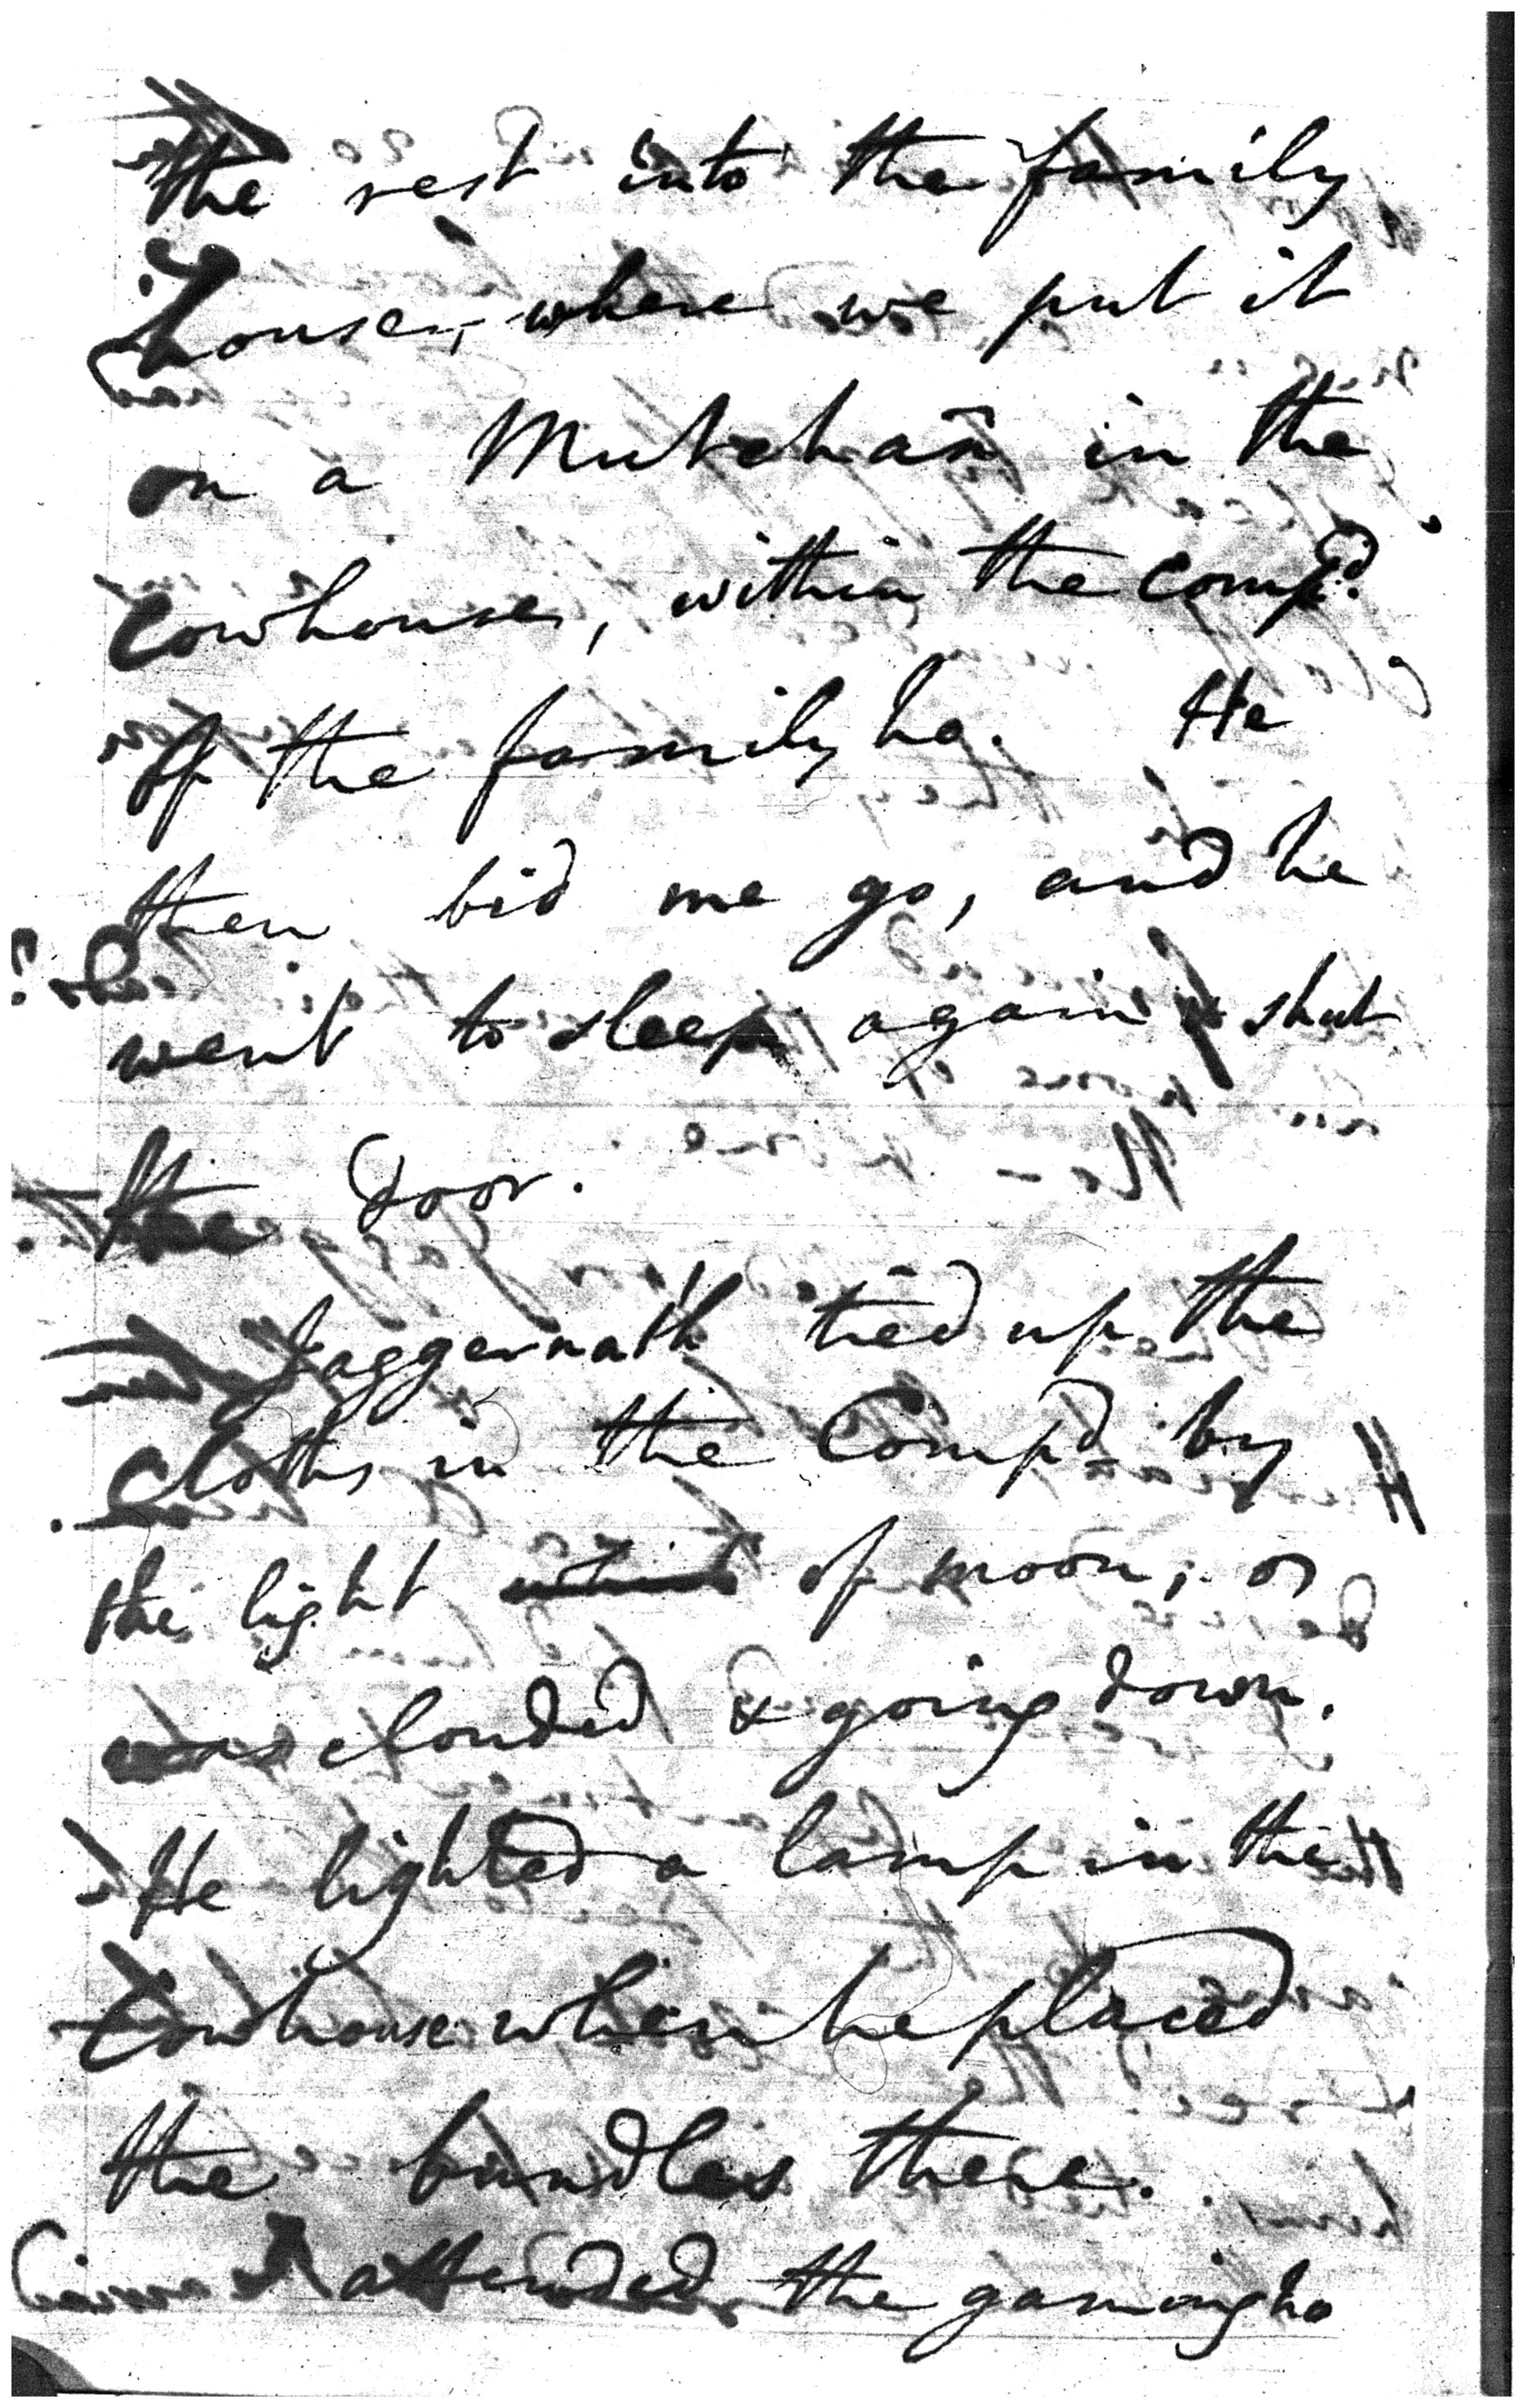 the rest into the family
house, where we put it
on a Mutchan in the
cowhouse, within the compd.
of the family ho. He
then bid me go, and he
went to sleep again & shut
the door.
Jaggernath tied up the
cloths in the Compd by
the light of moon; or
was clouded & going down.
He lighted a lamp in the
Cowhouse when he placed
the bundles there.
I attended the gaming ho